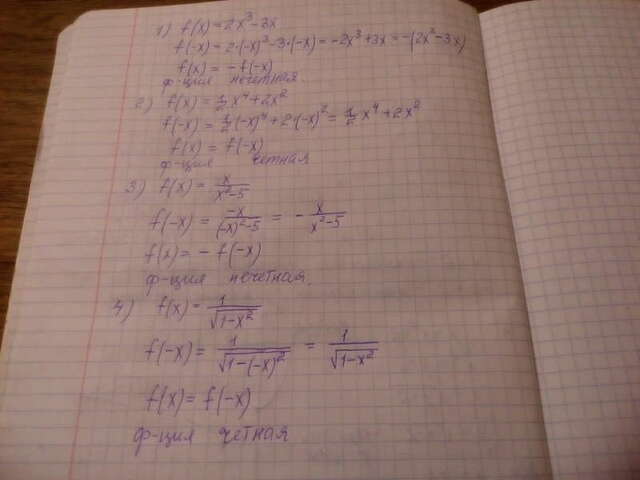 1) f(x) = 2x³ - 3x
f(-x) = 2·(-x)³ - 3·(-x) = -2x³ + 3x = -(2x³ - 3x)
f(x) = - f(-x)
ф-ция нечетная
2) f(x) = 1/2 x⁴ + 2x²
f(-x) = 1/2 (-x)⁴ + 2·(-x)² = 1/2 x⁴ + 2x²
f(x) = f(-x)
ф-ция четная
3) f(x) = x/(x²-5)
f(-x) = -x/((-x)²-5) = - x/(x²-5)
f(x) = - f(-x)
ф-ция нечетная.
4) f(x) = 1/√(1-x²)
f(-x) = 1/√(1-(-x)²) = 1/√(1-x²)
f(x) = f(-x)
ф-ция четная